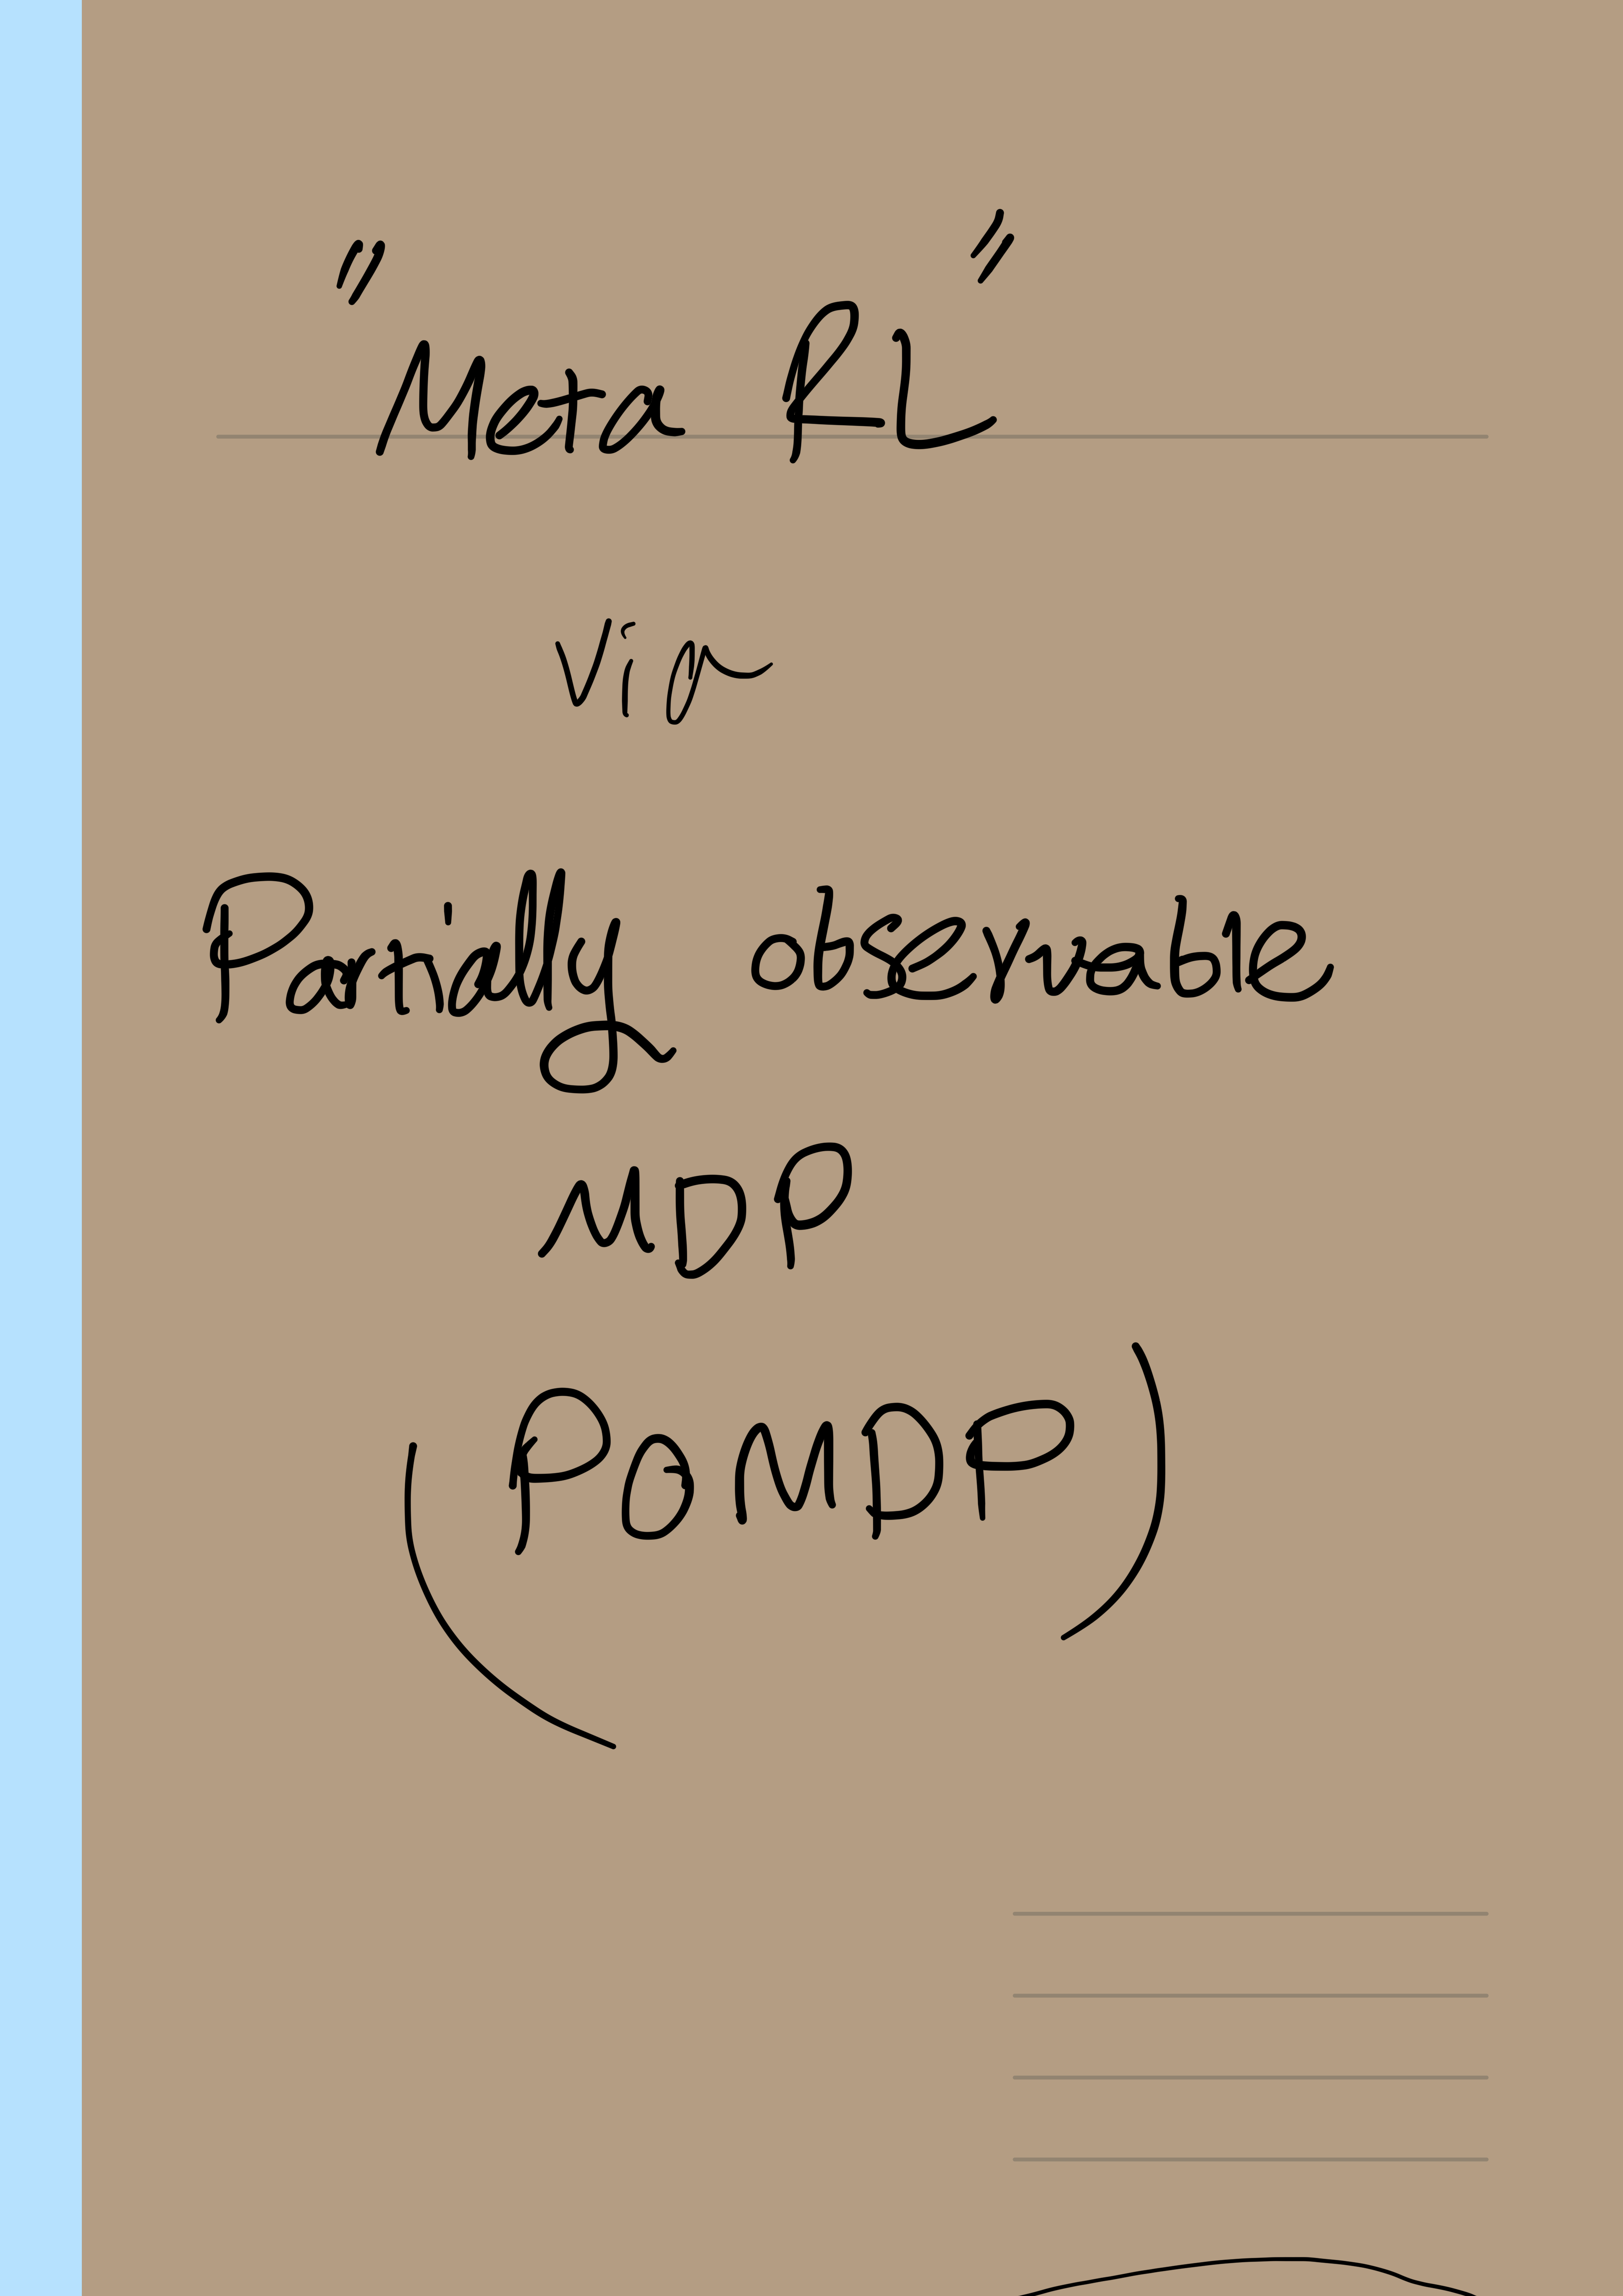 "Meta RL"
Via
Partially observable
MDP
(POMDP)